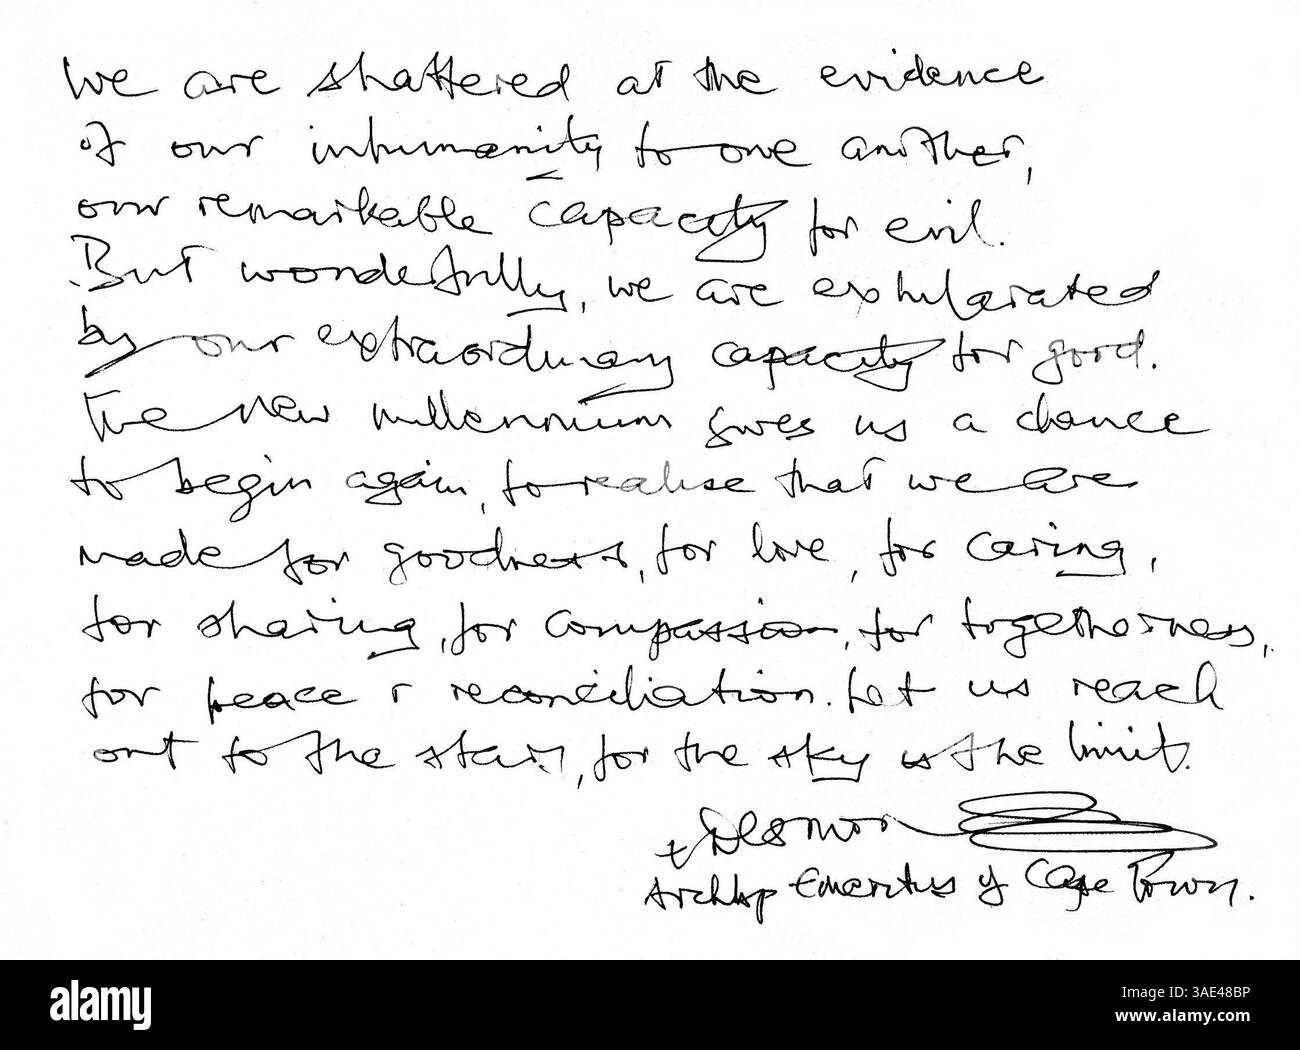 We are shattered at the evidence
of our inhumanity to one another,
our remarkable capacity for evil.
But wonderfully, we are exhilarated
by our extraordinary capacity for good.
The new millennium gives us a chance
to begin again, to realise that we are
made for goodness, for love, for caring,
for sharing, for compassion, for togetherness,
for peace & reconciliation. Let us reach
out to the stars, for the sky is the limit.
+ Desmon
Archbp Emeritus of Cape Town.
alamy
Image ID: 3AE48BP
www.alamy.com